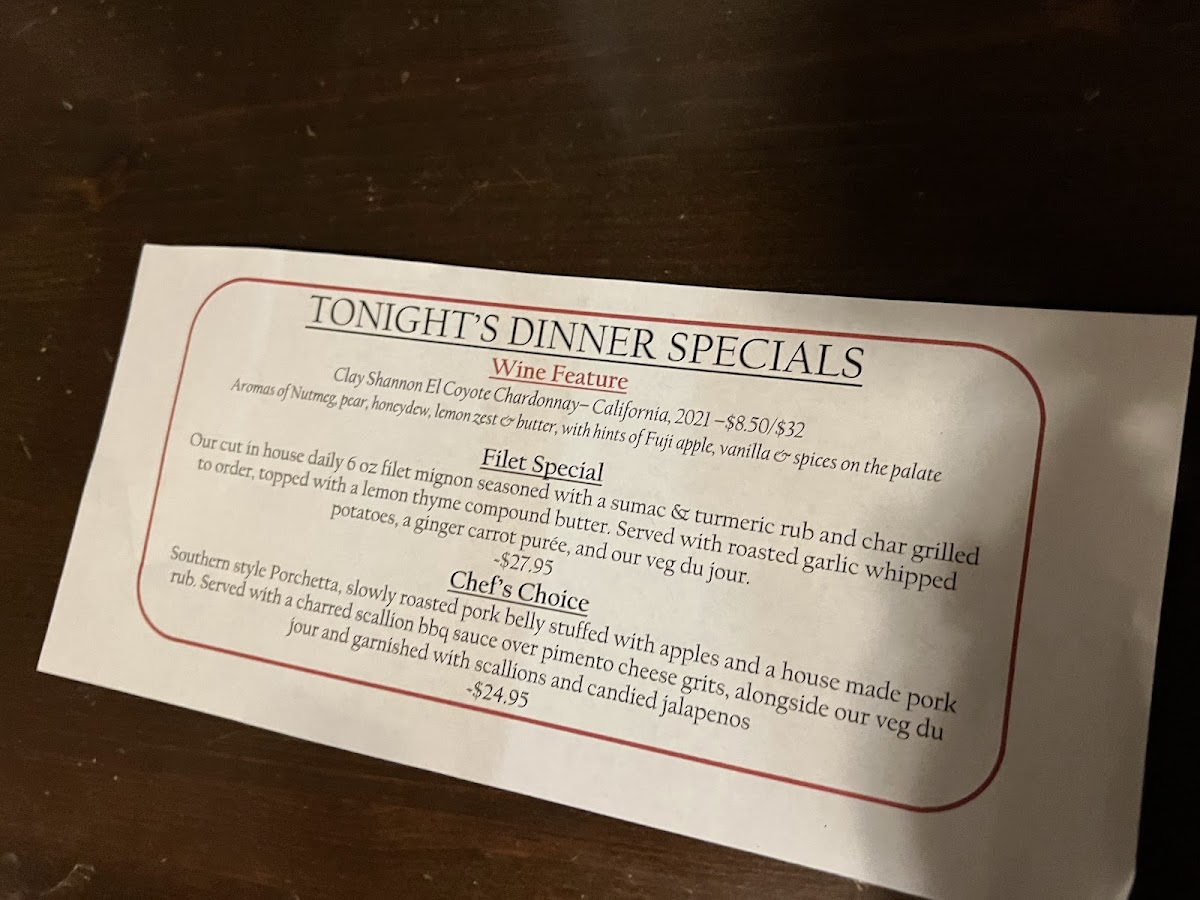 TONIGHT'S DINNER SPECIALS
Wine Feature
Clay Shannon El Coyote Chardonnay– California, 2021 –$8.50/$32
Aromas of Nutmeg, pear, honeydew, lemon zest & butter, with hints of Fuji apple, vanilla & spices on the palate
Filet Special
Our cut in house daily 6 oz filet mignon seasoned with a sumac & turmeric rub and char grilled
to order, topped with a lemon thyme compound butter. Served with roasted garlic whipped
potatoes, a ginger carrot purée, and our veg du jour.
-$27.95
Chef's Choice
Southern style Porchetta, slowly roasted pork belly stuffed with apples and a house made pork
rub. Served with a charred scallion bbq sauce over pimento cheese grits, alongside our veg du
jour and garnished with scallions and candied jalapenos
-$24.95